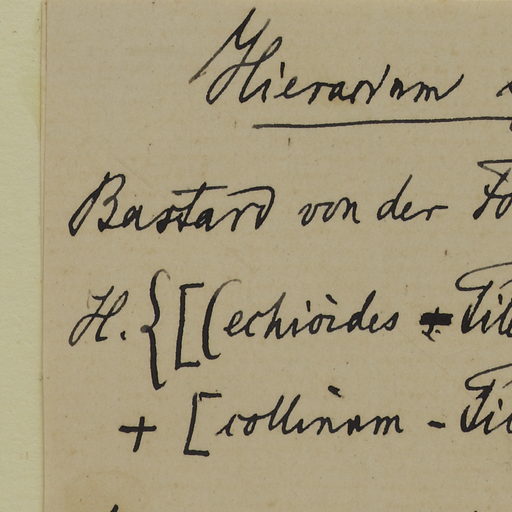 Hieracium
Bastard von der
H. { [ (echioides +
+ [ collinum -